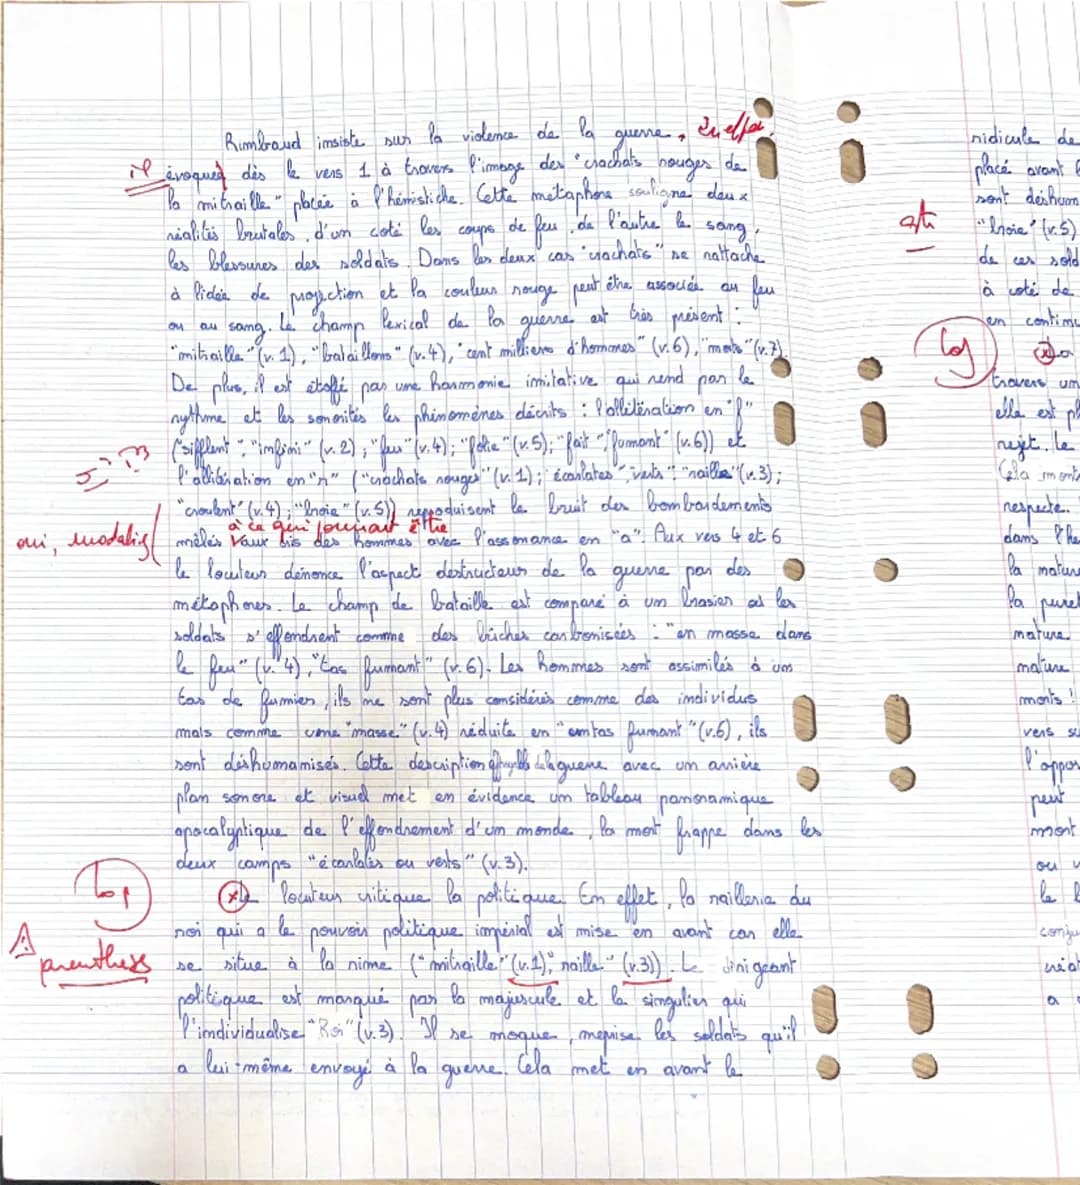 Rimbaud insiste sur la violence de la guerre. En effet,
il évoque dès le vers 1 à travers l'image des "crachats rouges de
la mitraille" placée à l'hémistiche. Cette métaphore souligne deux
réalités brutales, d'un coté les coups de feu, de l'autre le sang,
les blessures des soldats. Dans les deux cas "crachats" se rattache
à l'idée de projection et la couleur rouge peut être associée au feu
ou au sang. Le champ lexical de la guerre est très présent :
"mitraille" (v.1), "bataillons" (v.4), "cent milliers d'hommes" (v.6), "morts" (v.7).
De plus, il est étoffé par une harmonie imitative qui rend par le
rythme et les sonorités les phénomènes décrits : l'allitération en "f"
("sifflent", "infini" (v.2); "feu" (v.4); "folie" (v.5); "fait", "fumant" (v.6)) et
l'allitération en "r" ("crachats rouges" (v.1); "écarlates", "verts", "raille" (v.3);
"croulent" (v.4); "broie" (v.5)) reproduisent le bruit des bombardements
à ce qui pourrait être
oui, modalisé
mêlés aux cris des hommes avec l'assonance en "a". Aux vers 4 et 6
le locuteur dénonce l'aspect destructeur de la guerre par des
métaphores. Le champ de bataille est comparé à un brasier où les
soldats s'effondrent comme des bûches carbonisées : "en masse dans
le feu" (v.4), "tas fumant" (v.6). Les hommes sont assimilés à un
tas de fumier, ils ne sont plus considérés comme des individus
mais comme une "masse" (v.4) réduite en "un tas fumant" (v.6), ils
sont déshumanisés. Cette description effroyable de la guerre avec un arrière
plan sonore et visuel met en évidence un tableau panoramique
apocalyptique de l'effondrement d'un monde, la mort frappe dans les
deux camps "écarlates ou verts" (v.3).
Le locuteur critique la politique. En effet, la raillerie du
roi qui a le pouvoir politique impérial est mise en avant car elle
parenthèses
se situe à la rime ("mitraille" (v.1); "raille" (v.3)). Le dirigeant
politique est marqué par la majuscule et le singulier qui
l'individualise "Roi" (v.3). Il se moque, méprise les soldats qu'il
a lui-même envoyé à la guerre. Cela met en avant le
ridicule de
placé avant
sont déshum
"broie" (v.5)
de ces sold
à coté de
en continu
travers un
elle est pl
rejet. Le
Cela mont
respecte.
dans l'he
la nature
la puret
nature
nature
morts !
vers su
l'oppos
peut
mort
ou
le
conju
créat
a